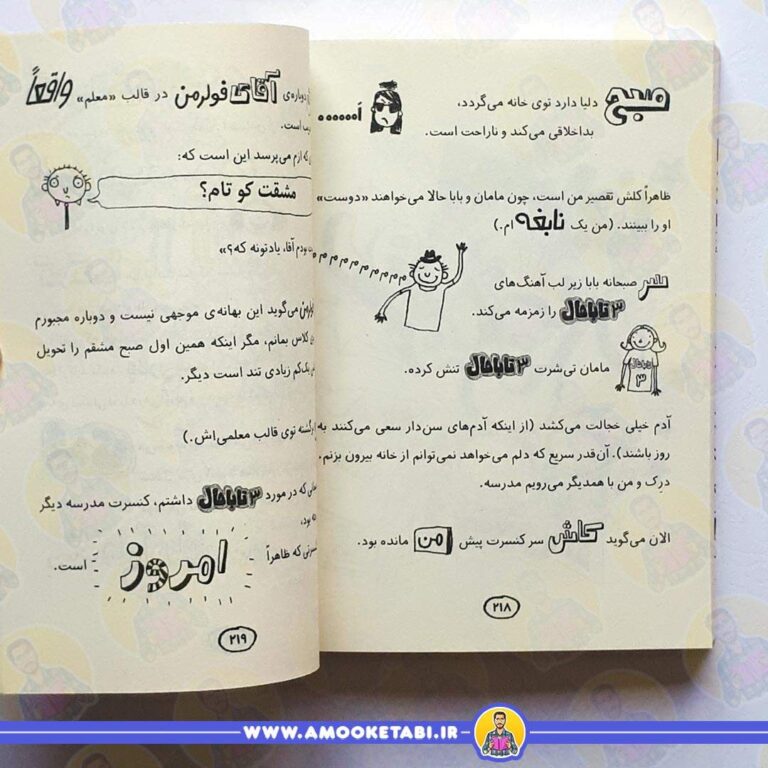 صبح دلیا دارد توی خانه می‌گردد، اَ......
بداخلاقی می‌کند و ناراحت است.
ظاهراً کلش تقصیر من است، چون مامان و بابا حالا می‌خواهند «دوست»
او را ببینند. (من یک نابغه ام.)
سر صبحانه بابا زیر لب آهنگ‌های
۳ تاباحال را زمزمه می‌کند.
مامان تی‌شرت ۳ تاباحال تنش کرده.
آدم خیلی خجالت می‌کشد (از اینکه آدم‌های سن‌دار سعی می‌کنند به
روز باشند). آن‌قدر سریع که دلم می‌خواهد نمی‌توانم از خانه بیرون بزنم.
درک و من با همدیگر می‌رویم مدرسه.
الان می‌گوید کاش سر کنسرت پیش من مانده بود.
۲۱۸
دوباره‌ی آقای فولرمن در قالب «معلم» واقعاً
است.
که ازم می‌پرسد این است که:
مشقت کو تام؟
بودم آقا، یادتونه که؟»
می‌گوید این بهانه‌ی موجهی نیست و دوباره مجبورم
کلاس بمانم، مگر اینکه همین اول صبح مشقم را تحویل
یک‌کم زیادی تند است دیگر.
توی قالب معلمی‌اش.)
که در مورد ۳ تاباحال داشتم، کنسرت مدرسه دیگر
بود،
که ظاهراً امروز است.
۲۱۹
WWW.AMOOKETABI.IR